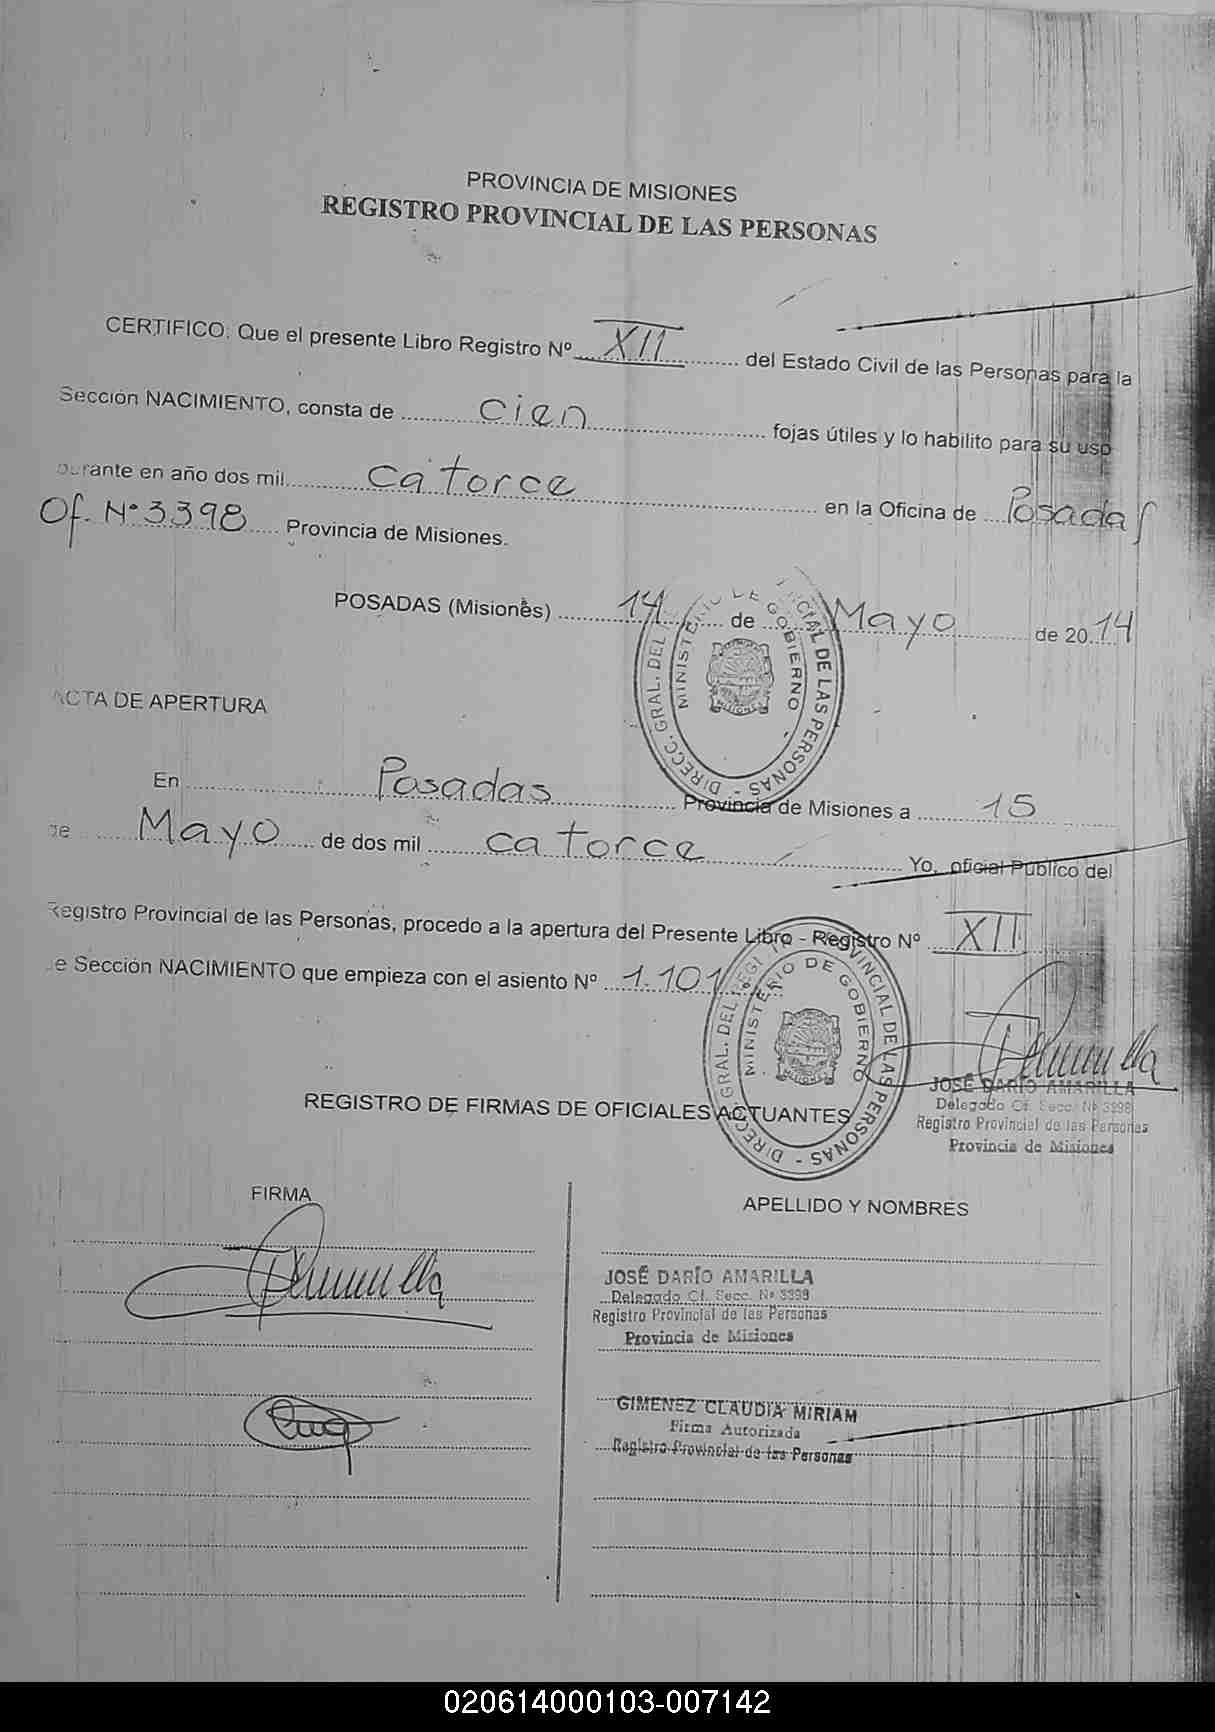 PROVINCIA DE MISIONES
REGISTRO PROVINCIAL DE LAS PERSONAS
CERTIFICO: Que el presente Libro Registro Nº XII del Estado Civil de las Personas para la
Sección NACIMIENTO, consta de cien fojas útiles y lo habilito para su uso
Durante en año dos mil catorce en la Oficina de Posadas
Of. Nº 3398 Provincia de Misiones.
POSADAS (Misiones) 14 de Mayo de 2014
DIRECC. GRAL. DEL PROVINCIAL DE LAS PERSONAS
MINISTERIO DE GOBIERNO
ACTA DE APERTURA
En Posadas Provincia de Misiones a 15
de Mayo de dos mil catorce Yo, oficial Publico del
Registro Provincial de las Personas, procedo a la apertura del Presente Libro - Registro Nº XII
de Sección NACIMIENTO que empieza con el asiento Nº 1.101
DIRECC. GRAL. DEL REGI PROVINCIAL DE LAS PERSONAS
MINISTERIO DE GOBIERNO
JOSÉ DARÍO AMARILLA
Delegado Of. Secc. Nº 3398
Registro Provincial de las Personas
Provincia de Misiones
REGISTRO DE FIRMAS DE OFICIALES ACTUANTES
FIRMA
APELLIDO Y NOMBRES
JOSÉ DARÍO AMARILLA
Delegado Of. Secc. Nº 3398
Registro Provincial de las Personas
Provincia de Misiones
GIMENEZ CLAUDIA MIRIAM
Firma Autorizada
Registro Provincial de las Personas
020614000103-007142